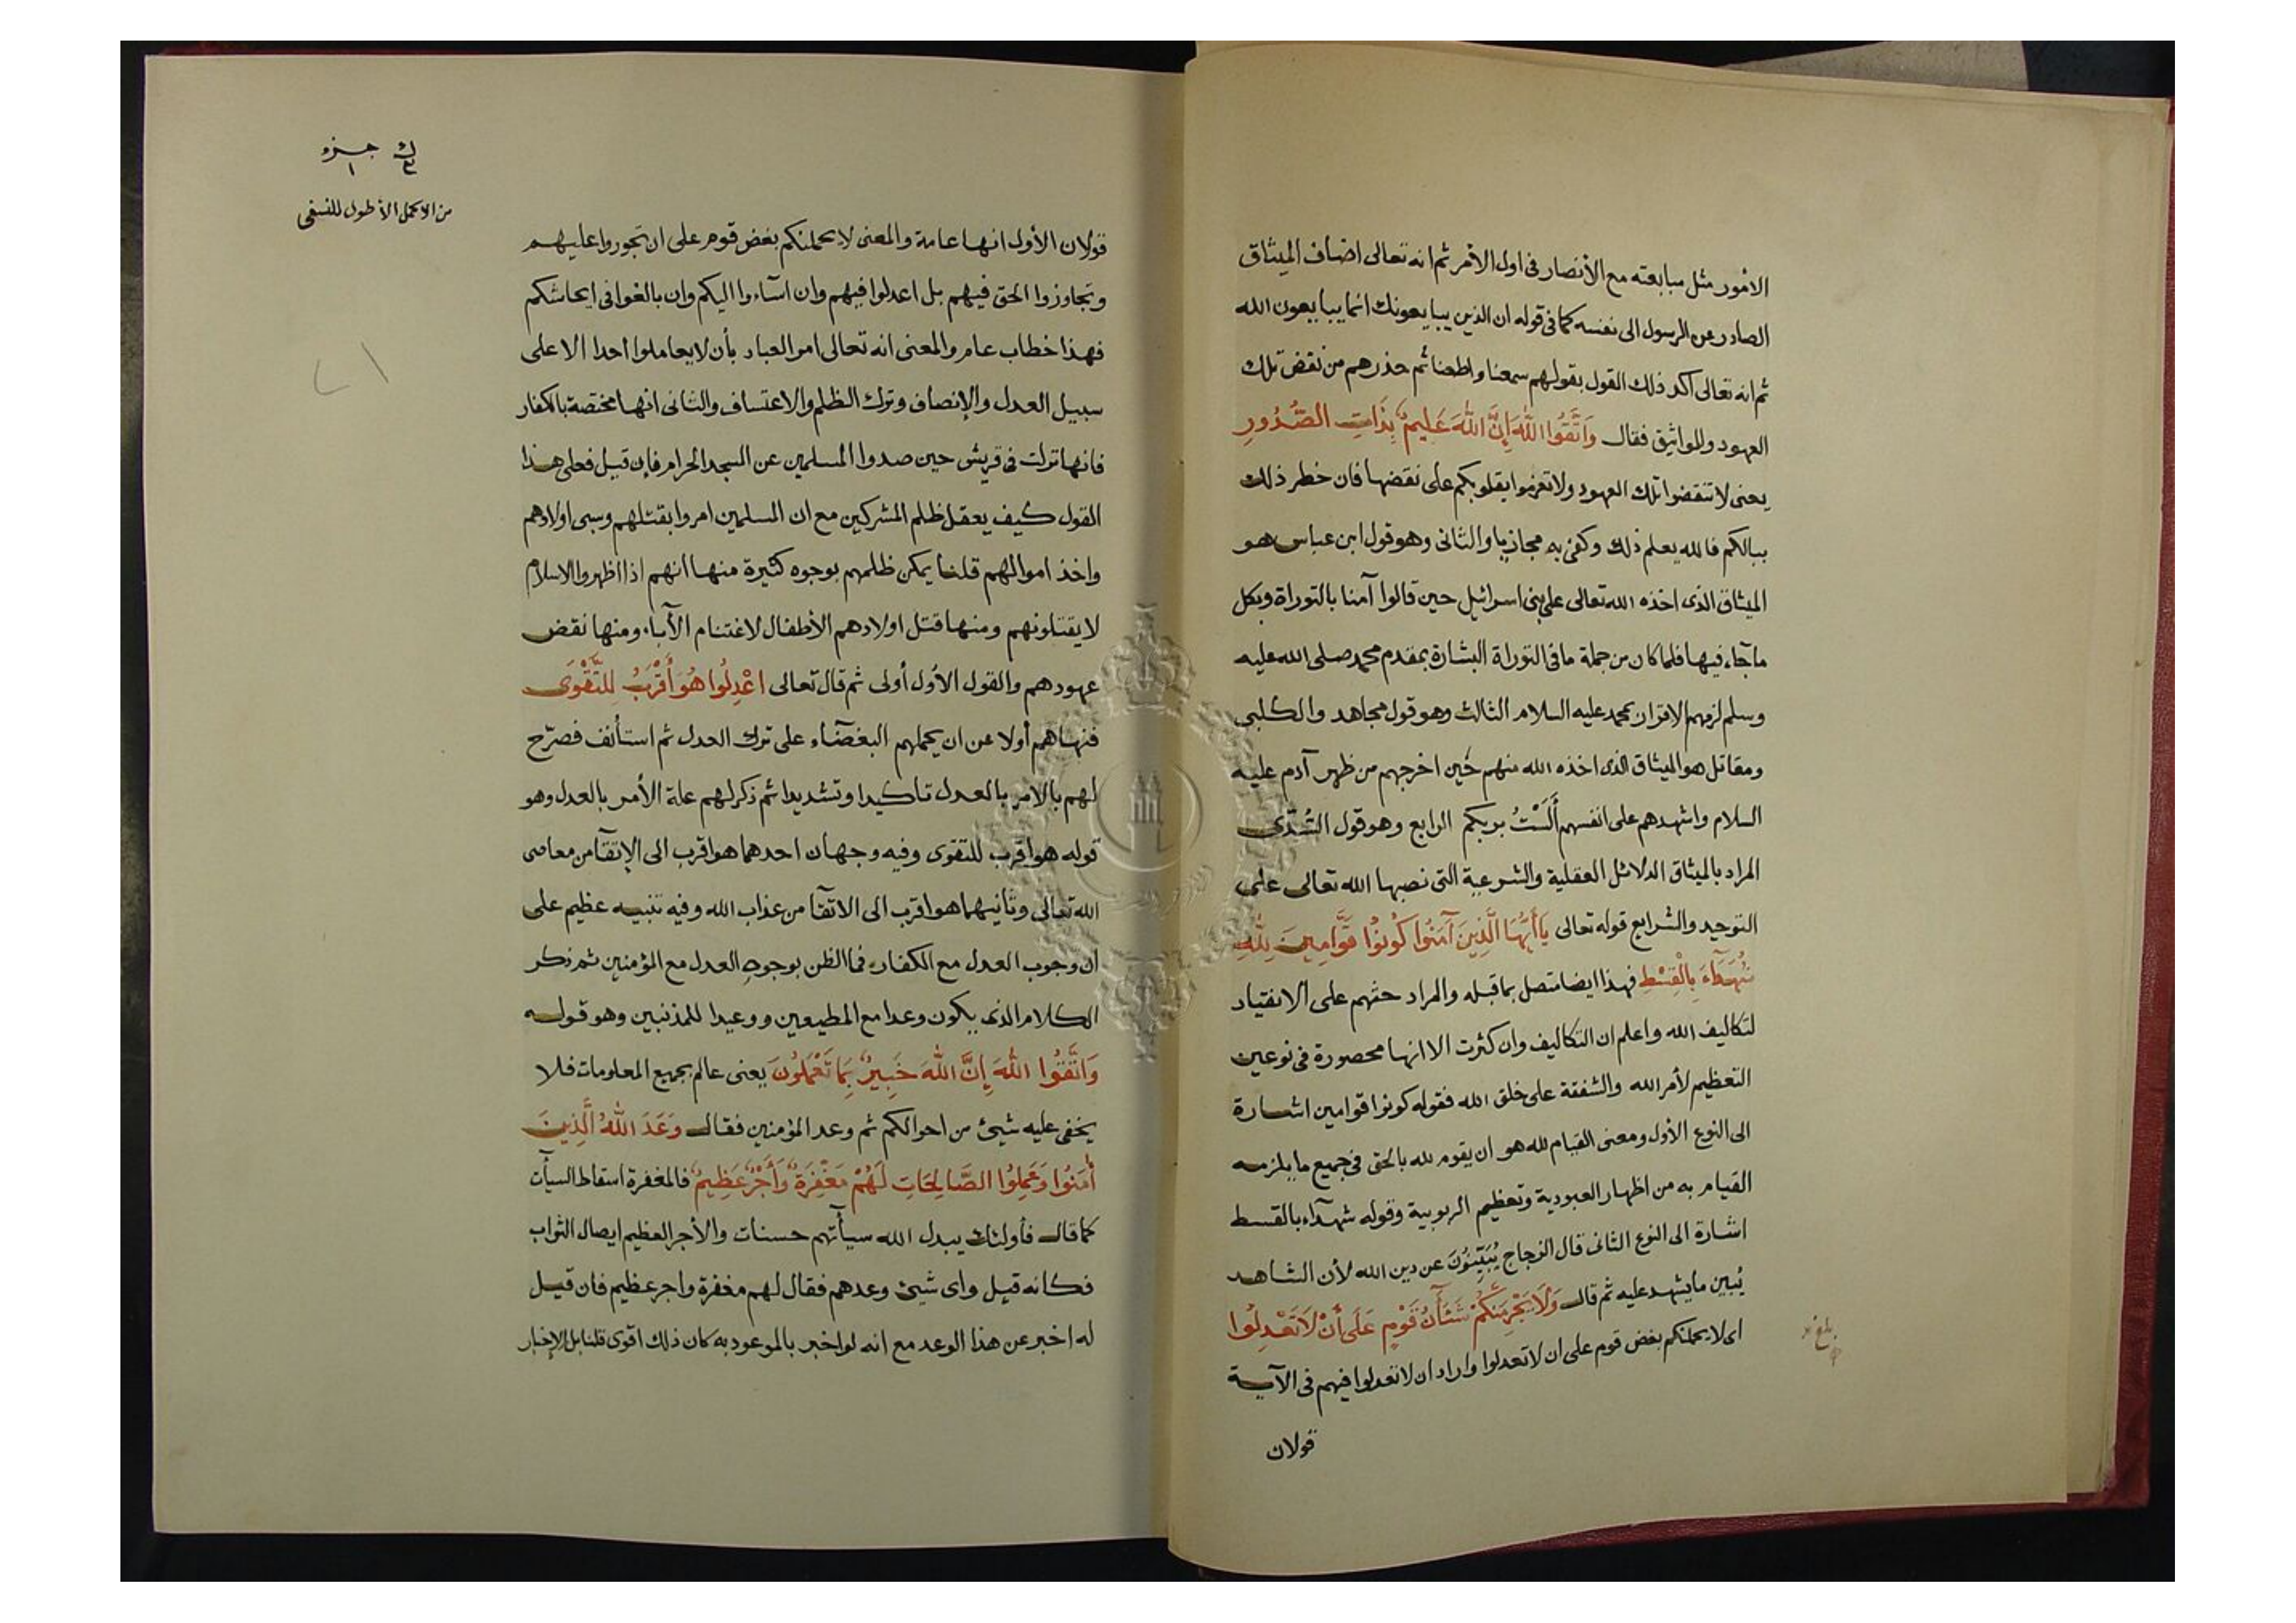 الأمور مثل مبايعته مع الأنصار فى اول الأمر ثم انه تعالى اضاف الميثاق
الصادر عن الرسول الى نفسه كما فى قوله ان الذين يبايعونك انما يبايعون الله
ثم انه تعالى اكد ذلك القول بقولهم سمعنا واطعنا ثم حذرهم من نقض تلك
العهود والمواثيق فقال وَاتَّقُوا اللهَ إِنَّ اللهَ عَلِيمٌ بِذَاتِ الصُّدُورِ
يعنى لا تنقضوا تلك العهود ولا تعزموا بقلوبكم على نقضها فان خطر ذلك
ببالكم فالله يعلم ذلك وكفى به مجازيا والثانى وهو قول ابن عباس هو
الميثاق الذى اخذه الله تعالى على بنى اسرائيل حين قالوا آمنا بالتوراة وبكل
ما جآء فيها فلما كان من جملة ما فى التوراة البشارة بمقدم محمد صلى الله عليه
وسلم لزمهم الاقرار بمحمد عليه السلام الثالث وهو قول مجاهد والكلبى
ومقاتل هو الميثاق الذى اخذه الله منهم حين اخرجهم من ظهر آدم عليه
السلام واشهدهم على انفسهم أَلَسْتُ بربكم الرابع وهو قول السُّدّى
المراد بالميثاق الدلائل العقلية والشرعية التى نصبها الله تعالى على
التوحيد والشرايع قوله تعالى يَاأَيُّهَا الَّذِينَ آمَنُوا كُونُوا قَوَّامِينَ لِلَّهِ
شُهَدَآءَ بِالْقِسْطِ فهذا ايضا متصل بما قبله والمراد حثهم على الانقياد
لتكاليف الله واعلم ان التكاليف وان كثرت الا انها محصورة فى نوعين
التعظيم لأمر الله والشفقة على خلق الله فقوله كونوا قوامين اشارة
الى النوع الأول ومعنى القيام لله هو ان يقوم لله بالحق فى جميع ما يلزمه
القيام به من اظهار العبودية وتعظيم الربوبية وقوله شهدآء بالقسط
اشارة الى النوع الثانى قال الزجاج يُبَيِّنُونَ عن دين الله لأن الشاهد
يُبين ما يشهد عليه ثم قال وَلَا يَجْرِمَنَّكُمْ شَنَآنُ قَوْمٍ عَلَى أَنْ لَا تَعْدِلُوا
اى لا يحملنكم بغض قوم على ان لا تعدلوا واراد ان لا تعدلوا فيهم فى الآية
قولان
جزء
١
من الاكمل الأطول للنسفى
قولان الأول انها عامة والمعنى لا يحملنكم بغض قوم على ان تجوروا عليهم
وتجاوزوا الحق فيهم بل اعدلوا فيهم وان اسآءوا اليكم وان بالغوا فى ايحاشكم
فهذا خطاب عام والمعنى انه تعالى امر العباد بأن لا يعاملوا احدا الا على
سبيل العدل والإنصاف وترك الظلم والاعتساف والثانى انها مختصة بالكفار
فانها نزلت فى قريش حين صدوا المسلمين عن المسجد الحرام فإن قيل فعلى هذا
القول كيف يعقل ظلم المشركين مع ان المسلمين امروا بقتلهم وسبى اولادهم
واخذ اموالهم قلنا يمكن ظلمهم بوجوه كثيرة منها انهم اذا اظهروا الاسلام
لا يقتلونهم ومنها قتل اولادهم الأطفال لاغتنام الآباء ومنها نقض
عهودهم والقول الأول أولى ثم قال تعالى اعْدِلُوا هُوَ أَقْرَبُ لِلتَّقْوَى
فنهاهم أولا عن ان يحملهم البغضآء على ترك العدل ثم استأنف فصرّح
لهم بالامر بالعدل تأكيدا وتشديدا ثم ذكر لهم علة الأمر بالعدل وهو
قوله هو اقرب للتقوى وفيه وجهان احدهما هو اقرب الى الإتقآ من معاصى
الله تعالى وثانيهما هو اقرب الى الاتقآ من عذاب الله وفيه تنبيه عظيم على
ان وجوب العدل مع الكفار فما الظن بوجوب العدل مع المؤمنين ثم ذكر
الكلام الذى يكون وعدا مع المطيعين ووعيدا للمذنبين وهو قوله
وَاتَّقُوا اللهَ إِنَّ اللهَ خَبِيرٌ بِمَا تَعْمَلُونَ يعنى عالم بجميع المعلومات فلا
يخفى عليه شيئ من احوالكم ثم وعد المؤمنين فقال وَعَدَ اللهُ الَّذِينَ
أمَنُوا وَعَمِلُوا الصَّالِحَاتِ لَهُمْ مَغْفِرَةٌ وَأَجْرٌ عَظِيمٌ فالمغفرة اسقاط السيآت
كما قال فأولئك يبدل الله سيآتهم حسنات والأجر العظيم ايصال الثواب
فكانه قيل واى شيئ وعدهم فقال لهم مغفرة واجر عظيم فان قيل
له اخبر عن هذا الوعد مع انه لو اخبر بالموعود به كان ذلك اقوى قلنا بل الإخبار